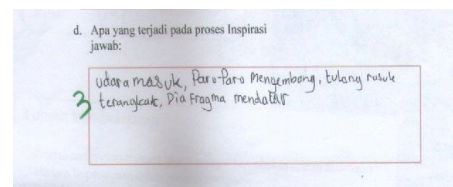 d. Apa yang terjadi pada proses Inspirasi
jawab:
udara masuk, Paru-Paru Mengembang, tulang rusuk
3 terangkat, Diafragma mendatar